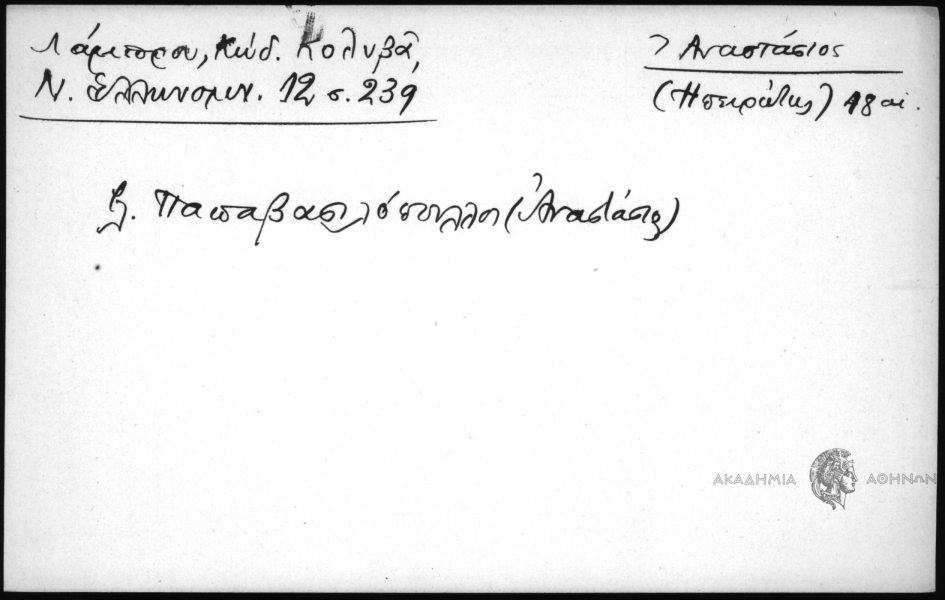 Λάμπρου, Κώδ. Κολυβᾶ,
Ν. Ἑλληνομν. 12 σ. 239
Ἀναστάσιος
(Ἠπειρώτης) 18 αἰ.
βλ. Παπαβασιλόπουλλοι (Ἀναστάσιος)
ΑΚΑΔΗΜΙΑ ΑΘΗΝΩΝ